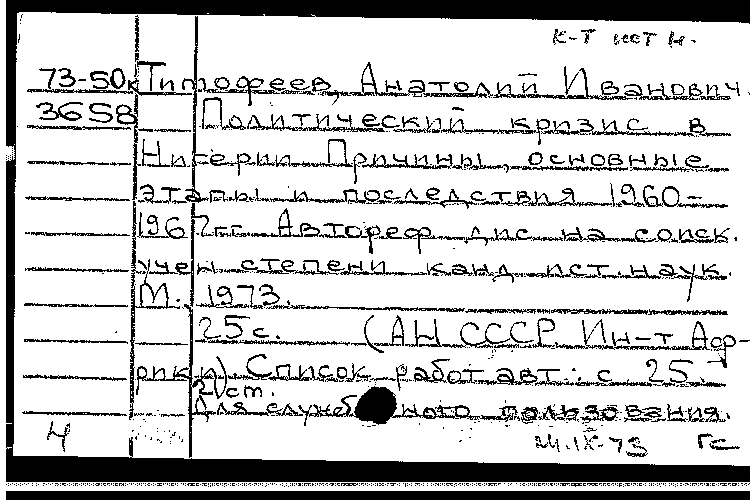 К-Т ист н.
73-50к Тимофеев, Анатолий Иванович.
3658 Политический кризис в
Нигерии Причины, основные
этапы и последствия 1960-
1967гг Автореф дис на соиск.
учен степени канд ист. наук.
М., 1973.
25с. (АН СССР. Ин-т Аф-
рики). Список работ авт.: с 25.
21 ст.
Для служебного пользования.
4
24.IX-73 ГС